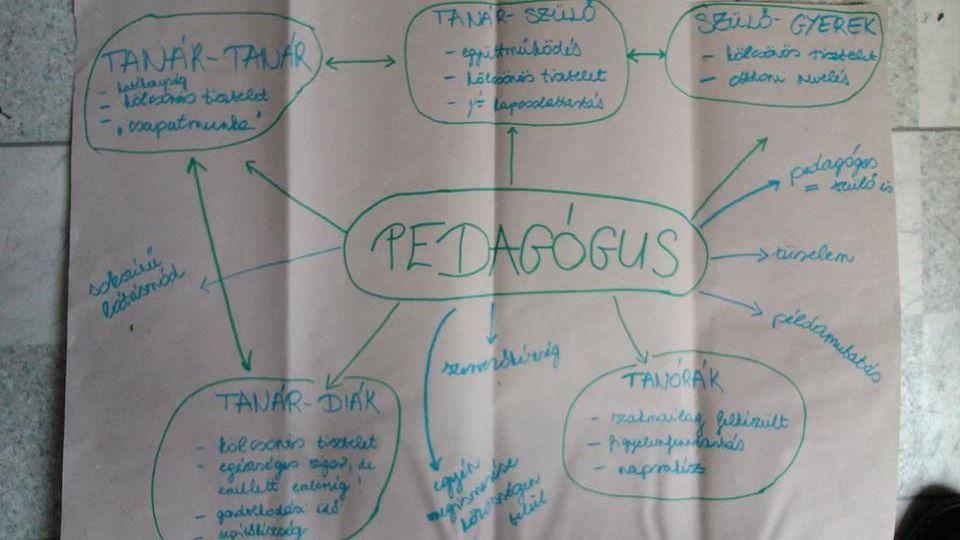 TANÁR-TANÁR
- hatékonyság
- kölcsönös tisztelet
- "csapatmunka"
TANÁR-SZÜLŐ
- együttműködés
- kölcsönös tisztelet
- jó kapcsolattartás
SZÜLŐ-GYEREK
- kölcsönös tisztelet
- otthoni nevelés
PEDAGÓGUS
pedagógus
= szülő is
türelem
példamutatás
sokszínű
látásmód
szavahihetőség
egyén
megismerése
közösségen
belül
TANÁR-DIÁK
- kölcsönös tisztelet
- egészséges szigor, de
emellett emberség!
- gondolkodási idő
- segítőkészség
TANÓRÁK
- szakmailag felkészült
- figyelemfenntartás
- naprakész